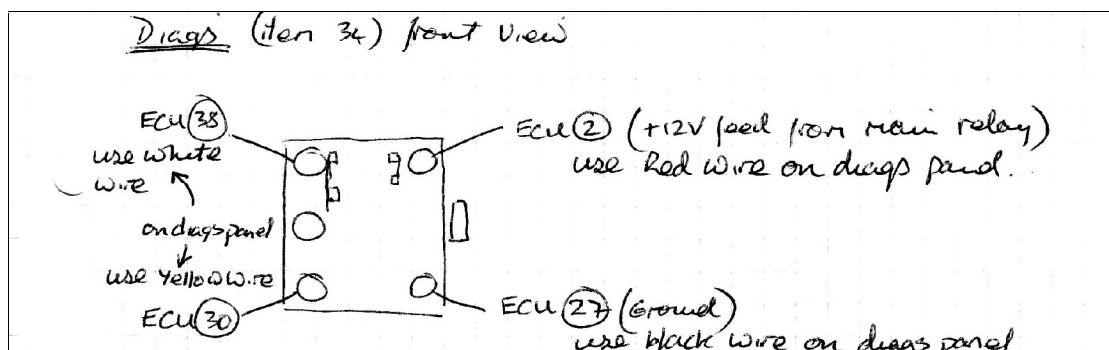 Diags (item 34) front view
ECU 38
use white
wire
on diags panel
use Yellow wire
ECU 30
ECU 2 (+12V feed from main relay)
use Red wire on diags panel.
ECU 27 (Ground)
use black wire on diags panel